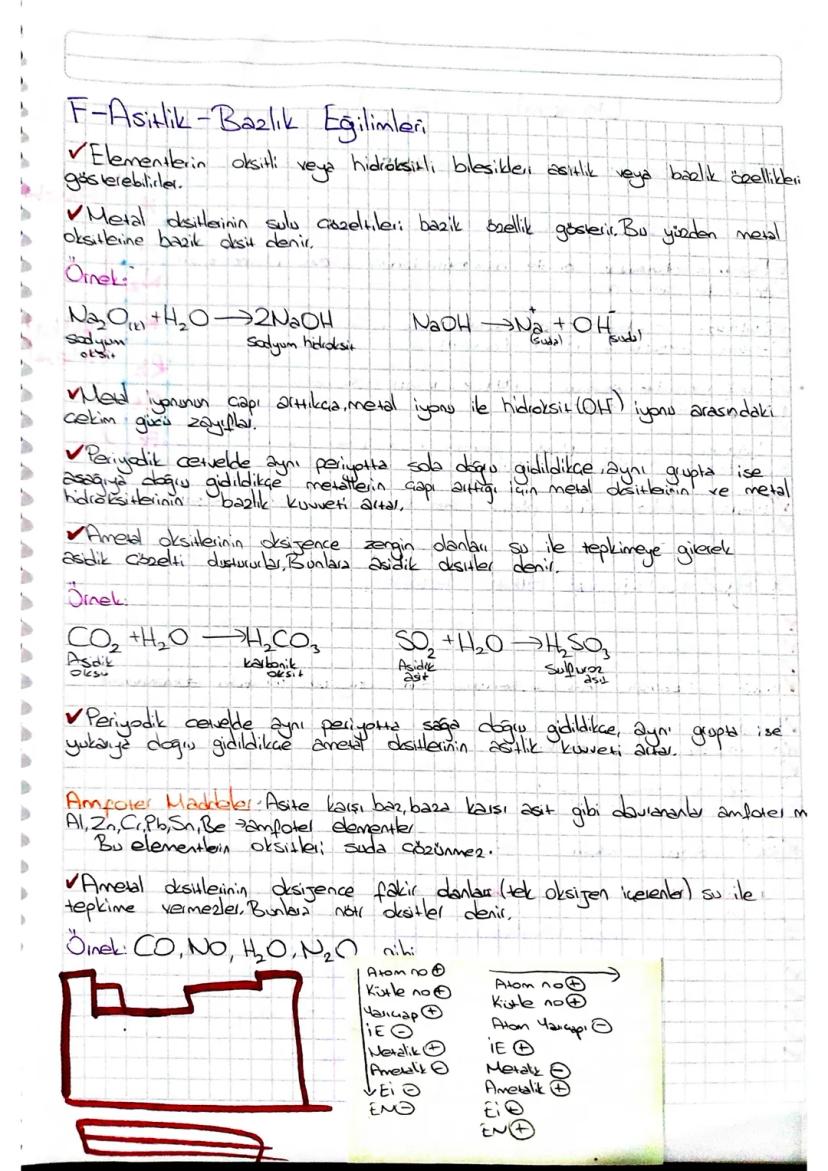 F-Asitlik-Bazlık Eğilimleri
✓Elementlerin oksitli veya hidroksitli bileşikleri asitlik veya bazlık özellikleri
gösterebilirler.
✓Metal oksitlerinin sulu çözeltileri bazik özellik gösterir. Bu yüzden metal
oksitlerine bazik oksit denir.
Örnek:
Na₂O(k) + H₂O → 2NaOH NaOH → Na⁺(suda) + OH⁻(suda)
sodyum oksit sodyum hidroksit
✓Metal iyonunun çapı arttıkça, metal iyonu ile hidroksit (OH⁻) iyonu arasındaki
çekim gücü zayıflar.
✓Periyodik cetvelde aynı periyotta sola doğru gidildikçe, aynı grupta ise
aşağıya doğru gidildikçe metallerin çapı arttığı için metal oksitlerinin ve metal
hidroksitlerinin bazlık kuvveti artar.
✓Ametal oksitlerinin oksijence zengin olanları su ile tepkimeye girerek
asidik çözelti oluştururlar. Bunlara asidik oksitler denir.
Örnek:
CO₂ + H₂O → H₂CO₃ SO₂ + H₂O → H₂SO₃
Asdik oksit karbonik oksit Asidik asit Sülfüroz asit
✓Periyodik cetvelde aynı periyotta sağa doğru gidildikçe, aynı grupta ise
yukarıya doğru gidildikçe ametal oksitlerinin asitlik kuvveti artar.
Amfoter Maddeler: Asite karşı baz, baza karşı asit gibi davrananlar amfoter m
Al, Zn, Cr, Pb, Sn, Be → amfoter elementler
Bu elementlerin oksitleri suda çözünmez.
✓Ametal oksitlerinin oksijence fakir olanları (tek oksijen içerenler) su ile
tepkime vermezler. Bunlara nötr oksitler denir.
Örnek: CO, NO, H₂O, N₂O
Atom no ⊕
Kütle no ⊕
Yarıçap ⊕
İE ⊖
Metalik ⊕
Ametalik ⊖
Ei ⊖
EN ⊖
Atom no ⊕
Kütle no ⊕
Atom Yarıçapı ⊖
İE ⊕
Metalik ⊖
Ametalik ⊕
Ei ⊕
EN ⊕